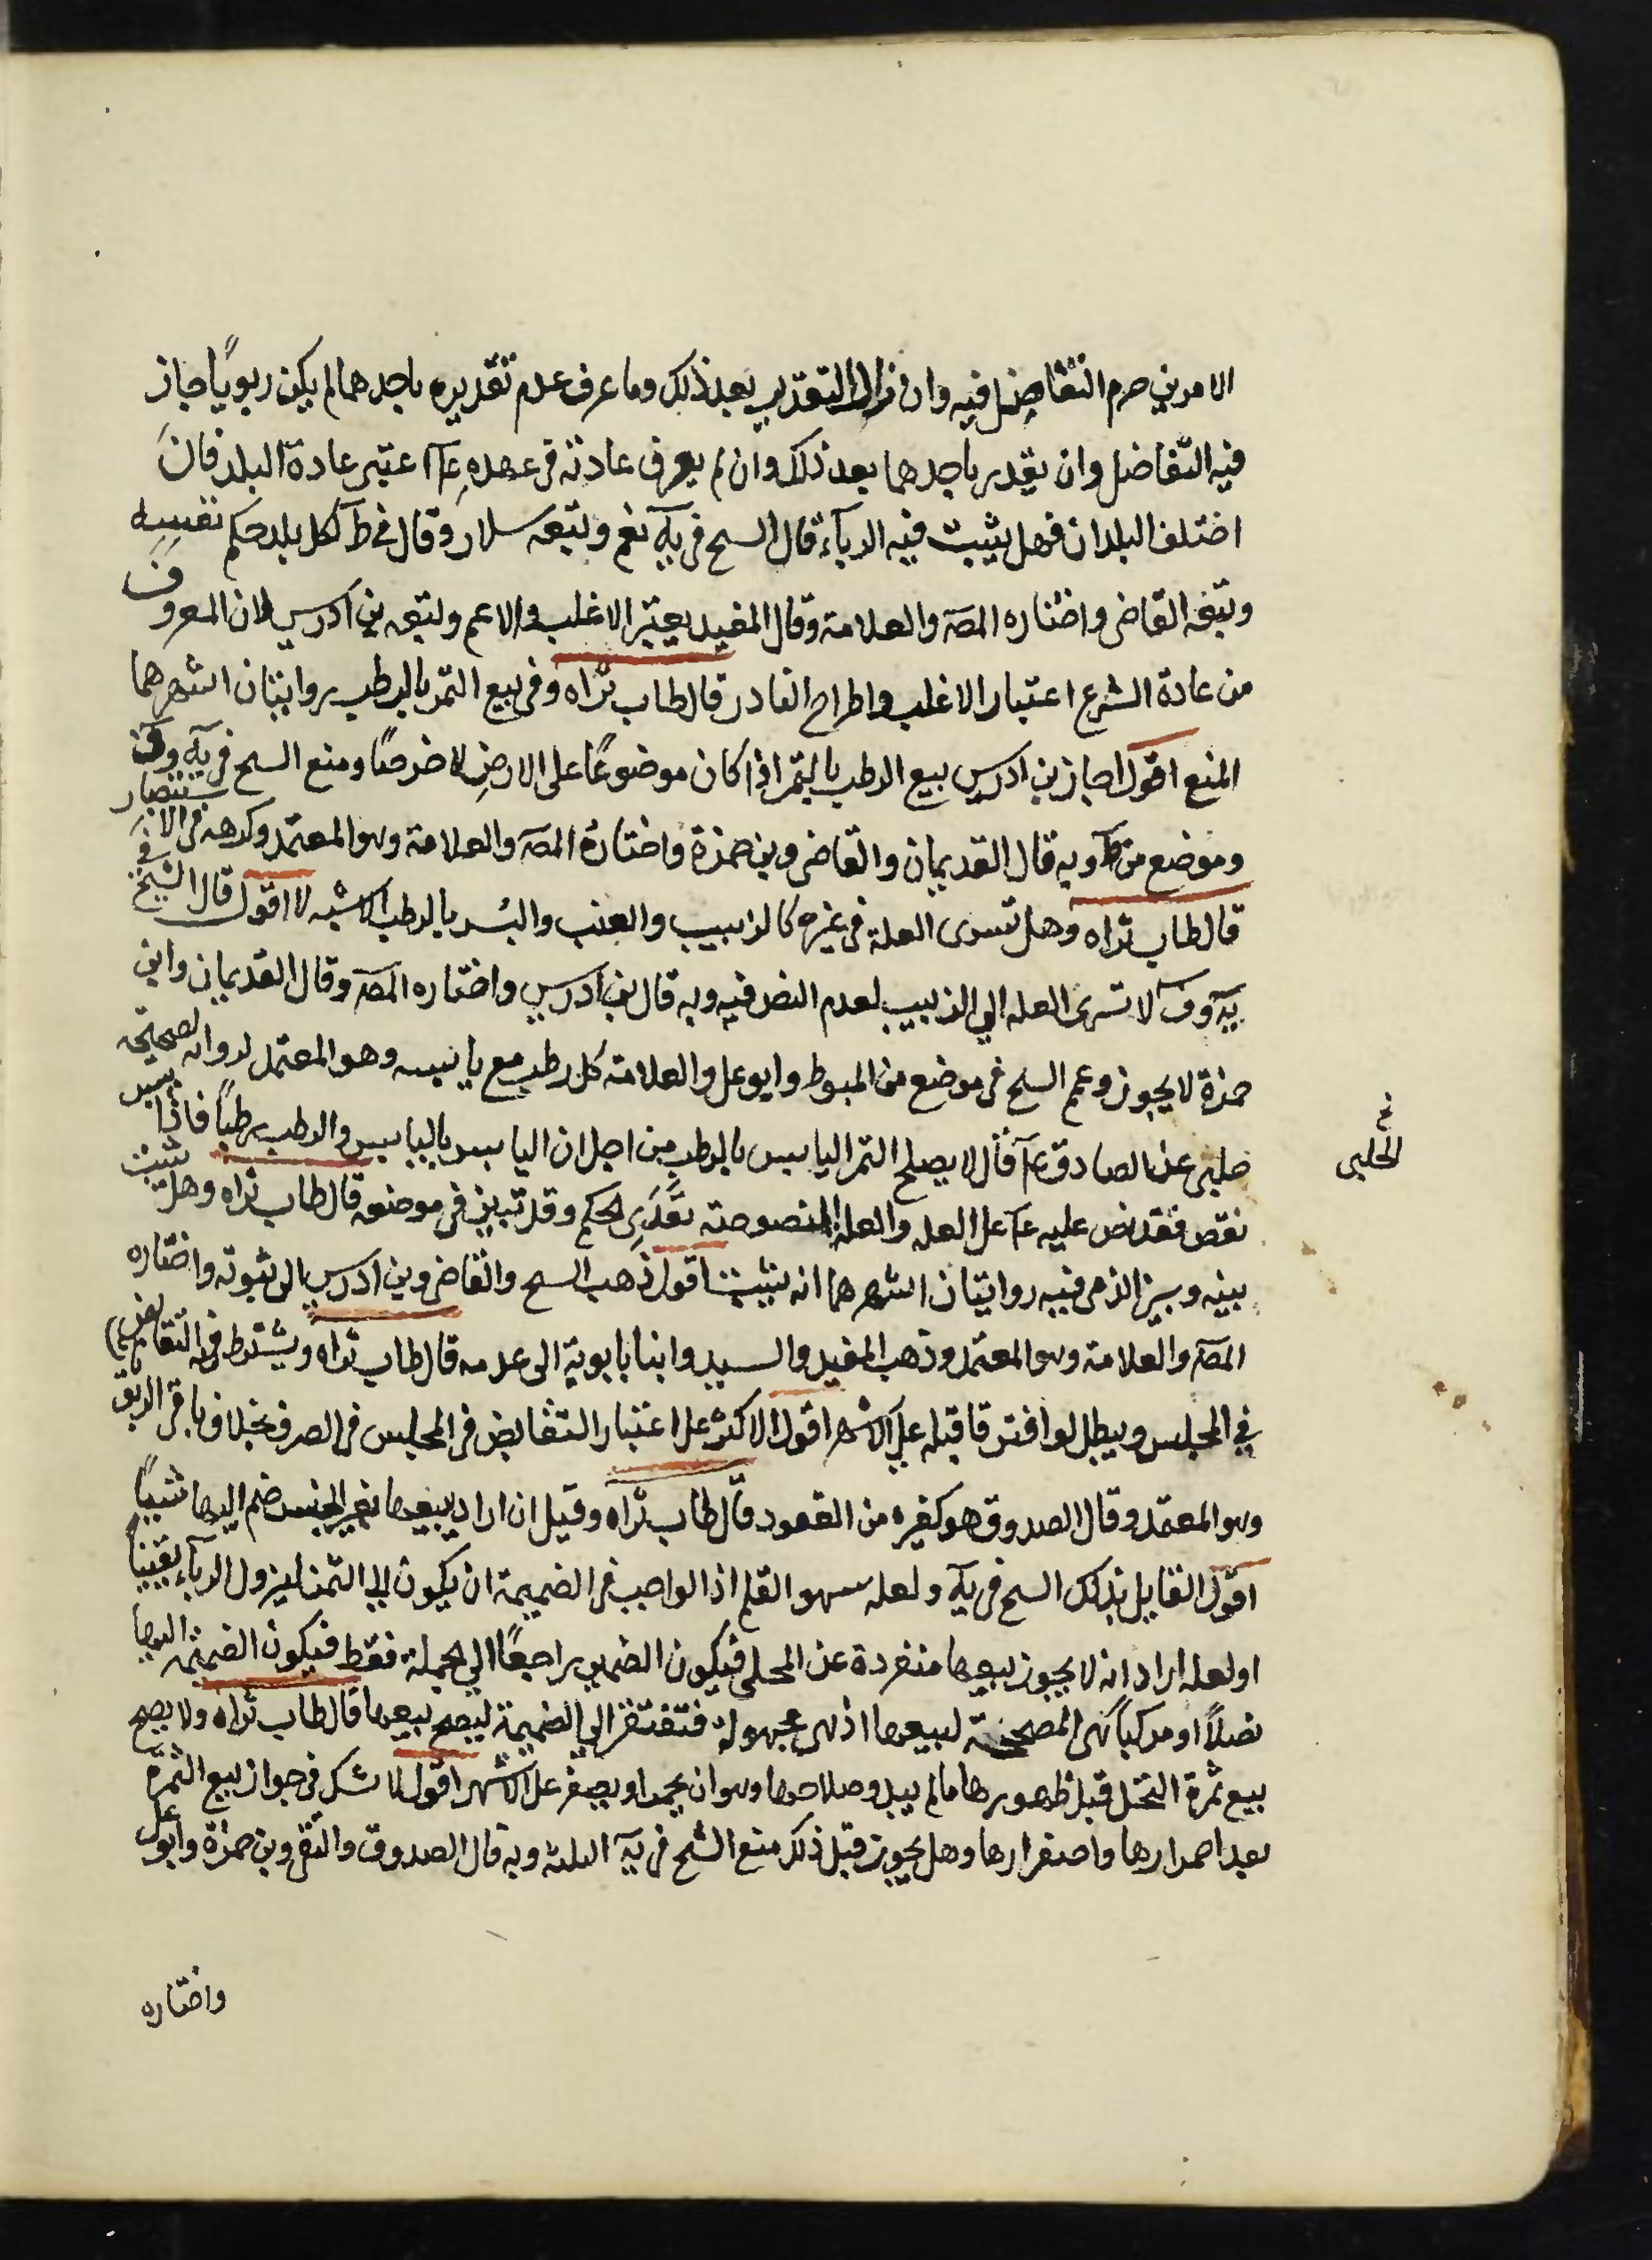 الامرين حرم التفاضل فيه وان زال التقدير بعد ذلك وما عرف عدم تقديره باحدهما لم يكن ربويًا جاز
فيه التفاضل وان يقدر باحدهما بعد ذلك وان لم يعرف عادته فى عهده ع‍آ اعتبر عادة البلد فان
اختلف البلدان فهل يثبت فيه الرباء قال السح فى يه‍ نعم وتبعه سلار وقال فى ط‍ لكل بلد حكم نفسه
وتبعه القاضى واختاره المص‍ والعلامة وقال المفيد يعتبر الاغلب والاعم وتبعه بن ادريس لان المعروف
من عادة الشرع اعتبار الاغلب واطراح النادر قال طاب ثراه وفى بيع التمر بالرطب روايتان اشهرهما
المنع اقول اجاز بن ادريس بيع الرطب بالتمر اذا كان موضوعًا على الارض لا خرصًا ومنع السح فى يه‍ وف‍
وموضع من ط‍ وبه قال القديمان والقاضى وبن حمزة واختاره المص‍ والعلامة وهو المعتمد وكرهه فى الاستبصار
قال طاب ثراه وهل تسرى العلة فى غيره كالزبيب والعنب والبسر بالرطب الاشبه لا اقول قال الشيخ فى
يه‍ وف‍ لا تسرى العله الي الزبيب لعدم النص فيه وبه قال بن ادريس واختاره المص‍ وقال القديمان وابن
حمزة لا يجوز وعم السح فى موضع من المبسوط وابو على والعلامة كل رطب مع يابسه وهو المعتمد لروايه صحيحه
حلبى عن الصادق ع‍آ قال لا يصلح التمر اليابس بالرطب من اجل ان اليابس باليابس والرطب رطبًا فاذا يبس
نقص فقد نص عليه ع‍آ على العله والعله المنصوصة تعدى الحكم وقد تبين فى موضعه قال طاب ثراه وهل يثبت
بينه وبين الذمى فيه روايتان اشهرهما انه يثبت اقول ذهب السح والقاضى وبن ادريس الى ثبوته واختاره
المص‍ والعلامة وهو المعتمد وذهب المفيد والسيد وابنا بابوية الى عدمه قال طاب ثراه ويشترط فيه التقابض
في المجلس ويبطل لو افترقا قبله على الاشهر اقول الاكثر على اعتبار التقابض فى المجلس فى الصرف بخلاف باقى الربويات
وهو المعتمد وقال الصدوق هو كغيره من العقود قال طاب ثراه وقيل ان اراد بيعها بغير الجنس ضم اليها شيئًا
اقول القايل بذلك السح فى يه‍ ولعله سهو القلم اذ الواجب فى الضميمة ان يكون الي الثمن ليزول الرباء يقينًا
او لعله اراد انه لا يجوز بيعها منفردة عن المحلى فيكون الضمير راجعًا الي الحملة فقط فيكون الضميمة اليها
نصلًا او مركبًا هى المصححة لبيعها اذ هى مجهولة فتفتقر الي الضميمة ليصح بيعها قال طاب ثراه ولا يصح
بيع ثمرة النخل قبل ظهورها ما لم يبد صلاحها وهو ان يحمر او يصفر على الاشهر اقول لا شك فى جواز بيع الثمرة
بعد احمرارها واصفرارها وهل يجوز قبل ذلك منع الشح فى يه‍ الثلثه وبه قال الصدوق والتقى وبن حمزة وابو على
واختاره
الحلبى